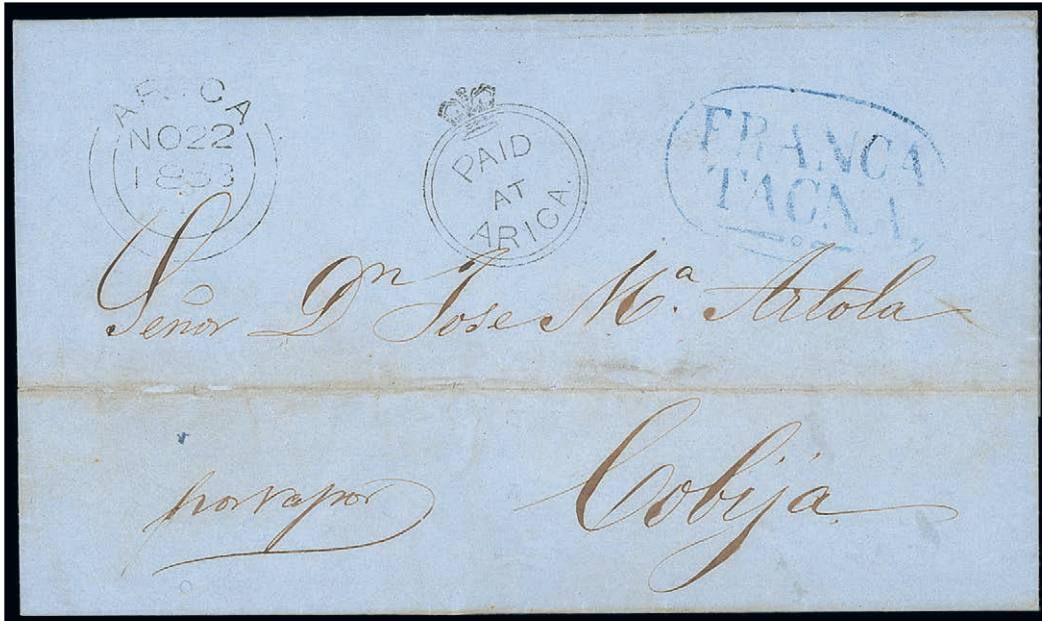 ARICA
NO 22
1853
PAID
AT
ARICA.
FRANCA
TACNA.
Señor Dn Jose Ma. Artola
por vapor
Cobija